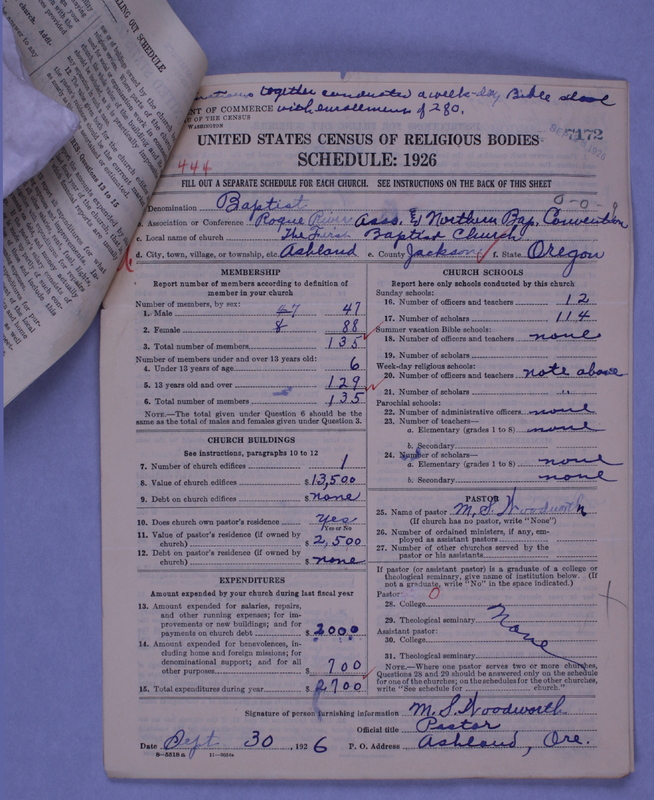 together conducted a week-day Bible school
with enrollment of 280.
NT OF COMMERCE
U OF THE CENSUS
WASHINGTON
7172
UNITED STATES CENSUS OF RELIGIOUS BODIES
SCHEDULE: 1926
444
FILL OUT A SEPARATE SCHEDULE FOR EACH CHURCH. SEE INSTRUCTIONS ON THE BACK OF THIS SHEET
Denomination Baptist 0-0-8
b. Association or Conference Rogue River Asso. & Northern Bap. Convention
c. Local name of church The First Baptist Church
d. City, town, village, or township, etc. Ashland e. County Jackson f. State Oregon
MEMBERSHIP
Report number of members according to definition of
member in your church
Number of members, by sex:
1. Male 47 47
2. Female 8 88
3. Total number of members 135
Number of members under and over 13 years old:
4. Under 13 years of age 6
5. 13 years old and over 129
6. Total number of members 135
NOTE.—The total given under Question 6 should be the
same as the total of males and females given under Question 3.
CHURCH BUILDINGS
See instructions, paragraphs 10 to 12
7. Number of church edifices 1
8. Value of church edifices $13,500
9. Debt on church edifices $none
10. Does church own pastor's residence yes
Yes or No
11. Value of pastor's residence (if owned by
church) $2,500
12. Debt on pastor's residence (if owned by
church) $none
EXPENDITURES
Amount expended by your church during last fiscal year
13. Amount expended for salaries, repairs,
and other running expenses; for im-
provements or new buildings; and for
payments on church debt $2000
14. Amount expended for benevolences, in-
cluding home and foreign missions; for
denominational support; and for all
other purposes 700
15. Total expenditures during year $2700
CHURCH SCHOOLS
Report here only schools conducted by this church
Sunday schools:
16. Number of officers and teachers 12
17. Number of scholars 114
Summer vacation Bible schools:
18. Number of officers and teachers none
19. Number of scholars
Week-day religious schools:
20. Number of officers and teachers note above
21. Number of scholars "
Parochial schools:
22. Number of administrative officers none
23. Number of teachers—
a. Elementary (grades 1 to 8) none
b. Secondary
24. Number of scholars—
a. Elementary (grades 1 to 8) none
b. Secondary none
PASTOR
25. Name of pastor M. S. Woodworth
(If church has no pastor, write "None")
26. Number of ordained ministers, if any, em-
ployed as assistant pastors
27. Number of other churches served by the
pastor or his assistants
If pastor (or assistant pastor) is a graduate of a college or
theological seminary, give name of institution below. (If
not a graduate, write "No" in the space indicated.)
Pastor: 0
28. College
29. Theological seminary None
Assistant pastor:
30. College
31. Theological seminary
NOTE.—Where one pastor serves two or more churches,
Questions 28 and 29 should be answered only on the schedule
for one of the churches; on the schedules for the other churches,
write "See schedule for church."
Signature of person furnishing information M. S. Woodworth
Official title Pastor
Date Sept 30, 1926 P. O. Address Ashland, Ore.
8-5318a